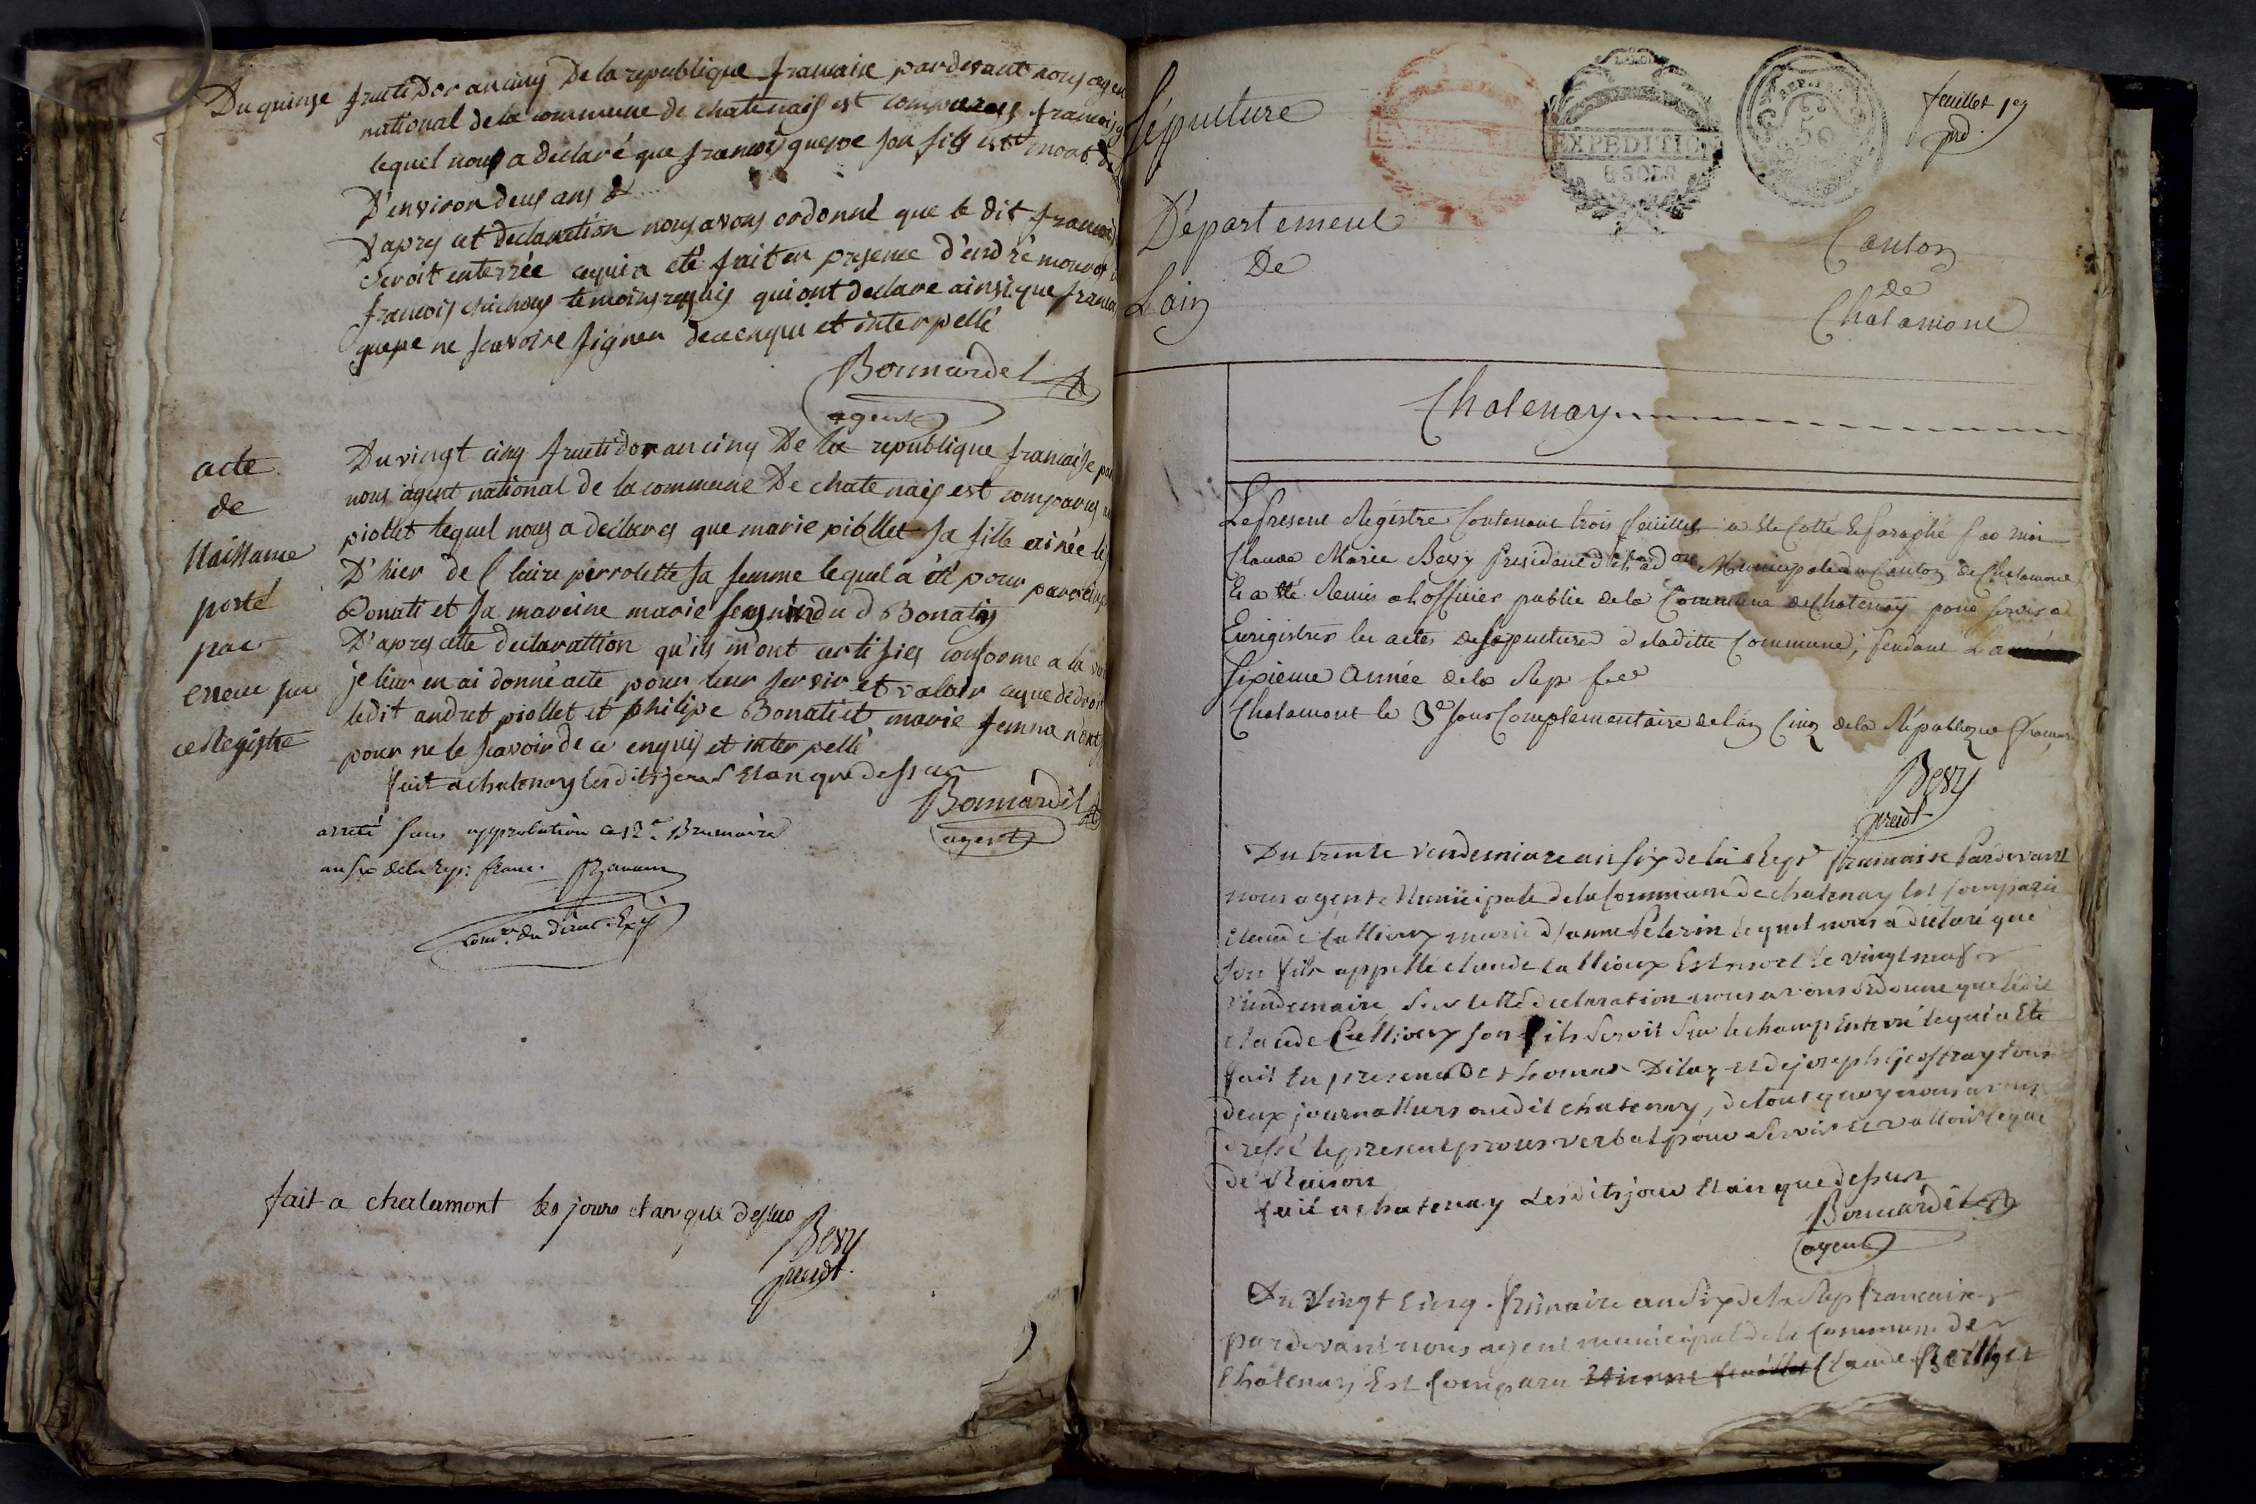 Du quinze fructidor an cinq De la republique francaise pardevant nous agen
national de la commune de chatenais est comparus francois g
lequel nous a declaré que francois guepe son fils est mort de
D'environ deus ans &
D'apres cet declaration nous avons ordonné que le dit francois
seroit enterrée cequi a eté fait en presence d'endré
francois temoins requis qui ont declare ainsi que francoi
guepe ne scavoire signer de ce enqui et interpellé
Bonnardel
agent
acte
de
Naissance
porté
par
erreur sur
ce Registre
Du vingt cinq fructidor an cinq De la republique francaise par
nous agent national de la commune De chatenais est comparus
piollet lequel nous a declares que marie piollet sa fille ainée
D'hier de Claire perrolette sa femme lequel a été pour
Bonati et sa mareine marie du d Bonatis
D'apres cette declarattion qu'ils m'ont certifies conforme a la
je leur en ai donné acte pour leur servir et valoir aque de droit
ledit andret piollet et philipe Bonati et marie femna n'ont
pour ne le scavoir de ce enquis et interpellé
fait a chatenay les dits jours Et an que dessus
Bonnardel
agent
arreté sans approbation ce 12e Brumaire
an six de la rep: franc.
comre du direct. Exif
fait a chalamont les jours et an que dessus
Bevy
presidt.
Sépulture
EXPEDITION
8 SOLS
REP. FRA.
50
feuillet 1er
prd.
Département
De
Lain
Canton
de
Chalamont
Chatenay
Le Present Régistre Contenant trois feuillets a été Cotté & Paraphé Par moi
Claude Marie Bevy President de l'adon Municipale du Canton de Chalamont
Et a été Remis a lofficier public de la Commune de Chatenay pour servir a
Enrigistrer les actes de sepultures de laditte Commune, pendant La
Sixieme Année de la Rep fse
Chalamont le 3e Jour Complementaire de l'an Cinq de la République Francaise
Bevy
presidt
Du trente vendemiaire an six de la Repe francaise Pardevant
nous agent Municipale de la Commune de chatenay Est comparu
claude Cullieux marie d Janne Pelerin lequel nous a declaré que
son fils appellé claude Cullieux Est mort le vingt neuf
vendemaire sur cette declaration nous avons ordonne que ledit
claude Cullieux son fils seroit sur le champ Enterré ce qui a Eté
fait En presence de thomas Dilaz et de joseph geoffray tous
deux journalliers audit chatenay, de tout quoy nous avons
dressé le present proces verbal pour servir et valloir ce que
de Raison
fait a chatenay Les dits jour Et an que dessus
Bonnardel
agent
Du Vingt Cinq frimaire an Six de la Rep francaise
pardevant nous agent municipal de la Commune de
Chatenay Est Comparu Etienne feuillet Claude